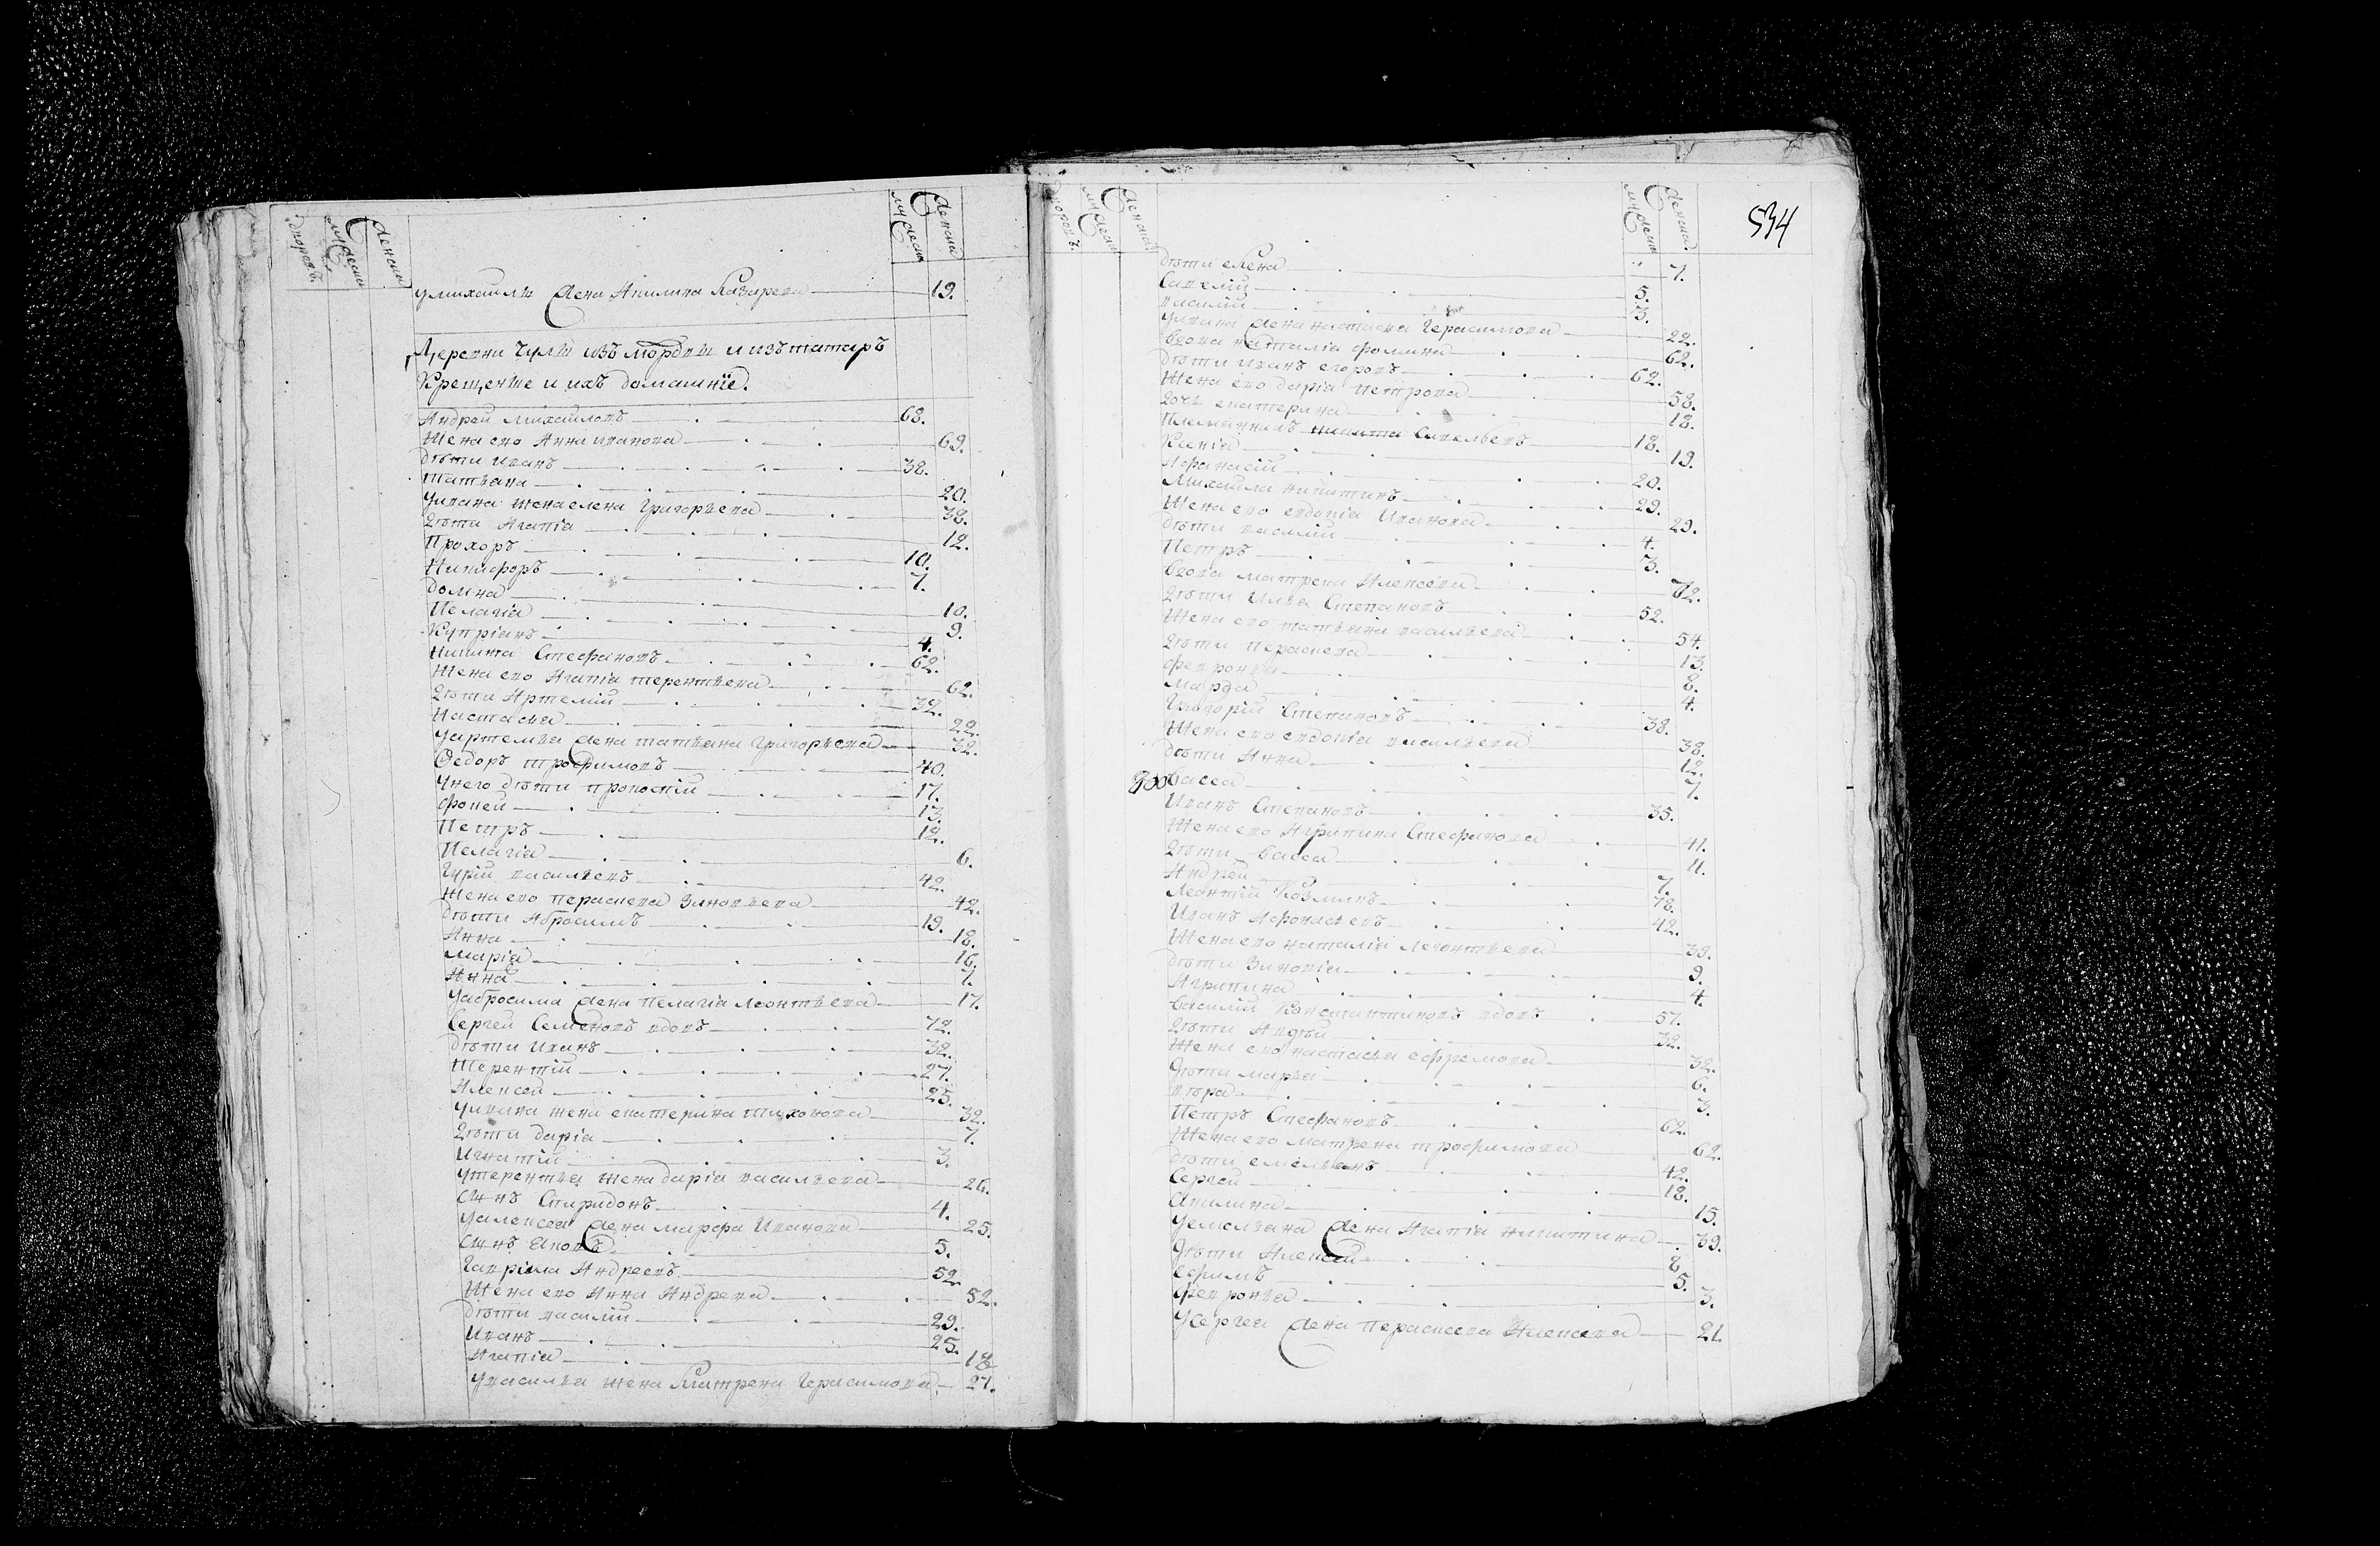 дворовъ
мужеска
женска
мужеска
женска
умихаилы жена Акилина Казарева 19.
Деревни Чулы изъ мордвы и изъ татаръ
Крещеные и ихъ домашнiе.
Андрей михаиловъ 68.
Жена ево Анна иванова 69.
дѣти иванъ 38.
татьяна 20.
уивана жена елена григорьева 38.
дѣти Агапiя 12.
Прохоръ 10.
Никифоръ 7.
домна 10.
Пелагiя 9.
Купрiянъ 4.
никита Стефановъ 62.
Жена ево Агапiя терентьева 62.
дѣти Артемiй 32.
настасья 22.
уартемья жена татьяна григорьева 32.
Федоръ трофимовъ 40.
унего дѣти прокопiй 17.
фокей 13.
Петръ 12.
Пелагiя 6.
гурiй васильевъ 42.
Жена ево Параскева Зиновьева 42.
дѣти Абросимъ 19.
Анна 18.
марiя 16.
Анна 7.
уабросима жена Пелагiя леонтьева 17.
Сергей Семеновъ вдовъ 72.
дѣти Иванъ 32.
Терентiй 27.
Алексей 25.
уивана жена екатерина тихонова 32.
дѣти дарiя 7.
Игнатiй 3.
утерентья жена дарiя васильева 26.
сынъ Спиридонъ 4.
уалексея жена марфа Иванова 25.
сынъ Яковъ 5.
гаврiла Андреевъ 52.
Жена ево Анна Андрева 52.
дѣти василiй 29.
Иванъ 25.
Агапiя 18.
увасилья жена Матрена герасимова 27.
дворовъ.
мужеска
женска
мужеска
женска.
534
дѣти елена 7.
Савелiй 5.
василiй 3.
уивана жена настасья герасимова 22.
вдова наталiя фомина 62.
дѣти иванъ егоровъ 62.
Жена ево дарiя петрова 58.
дочь екатерина 18.
Племянникъ никита Савельевъ 18.
Ксенiя 19.
Афанасiй 20.
Михаила никитинъ 29.
Жена ево евдокiя Иванова 29.
дѣти василiй 4.
Петръ 3.
вдова матрена Алексеева 72.
дѣти Илья Степановъ 52.
Жена ево татьяна васильева 54.
дѣти параскева 13.
февронья 8.
марфа 4.
григорiй Степановъ 38.
Жена ево евдокiя васильева 38.
дѣти Анна 12.
васса 7.
Иванъ Степановъ 35.
Жена ево Агрипина Стефанова 41.
дѣти васса 11.
Андрей 7.
Леонтiй Козминъ 78.
Иванъ Афонасьевъ 42.
Жена ево наталiя леонтьева 39.
дѣти Зиновiя 9.
Агрипина 4.
василiй Константиновъ вдовъ 57.
дѣти Авдѣй 32.
Жена ево настасья ефремова 32.
дѣти марья 6.
вѣра 3.
Петръ Стефановъ 62.
Жена ево матрена трофимова 62.
дѣти емельянъ 42.
Сергей 18.
Акилина 15.
уемельяна жена Агапiя никитина 39.
дѣти Алексей 8.
ефимъ 5.
февронья 3.
уСергея жена параскева Алексева 21.